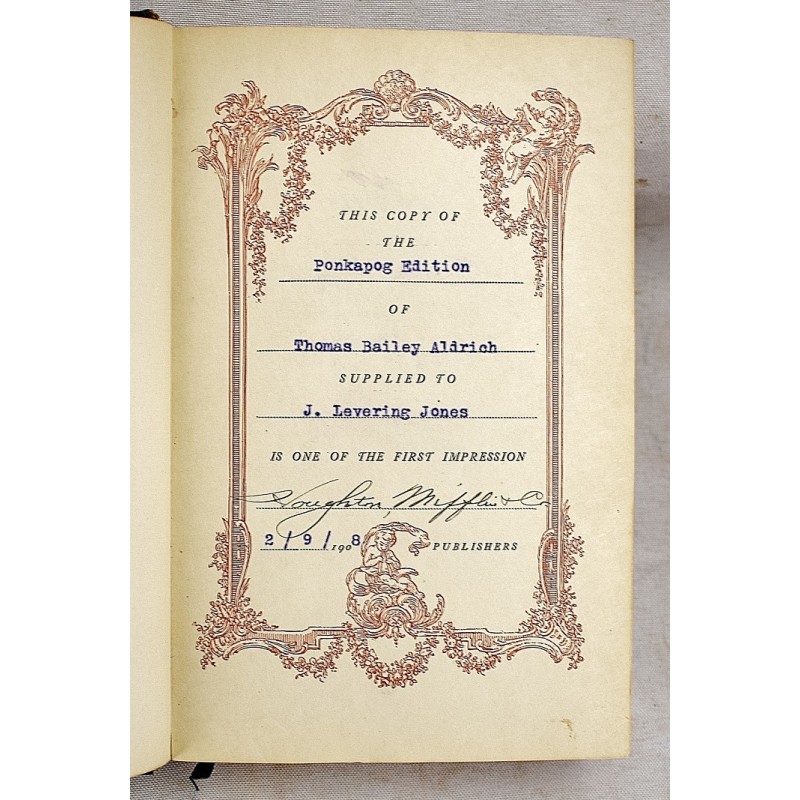 THIS COPY OF
THE
Ponkapog Edition
OF
Thomas Bailey Aldrich
SUPPLIED TO
J. Levering Jones
IS ONE OF THE FIRST IMPRESSION
Houghton, Mifflin & Co.
2/9/1908 PUBLISHERS